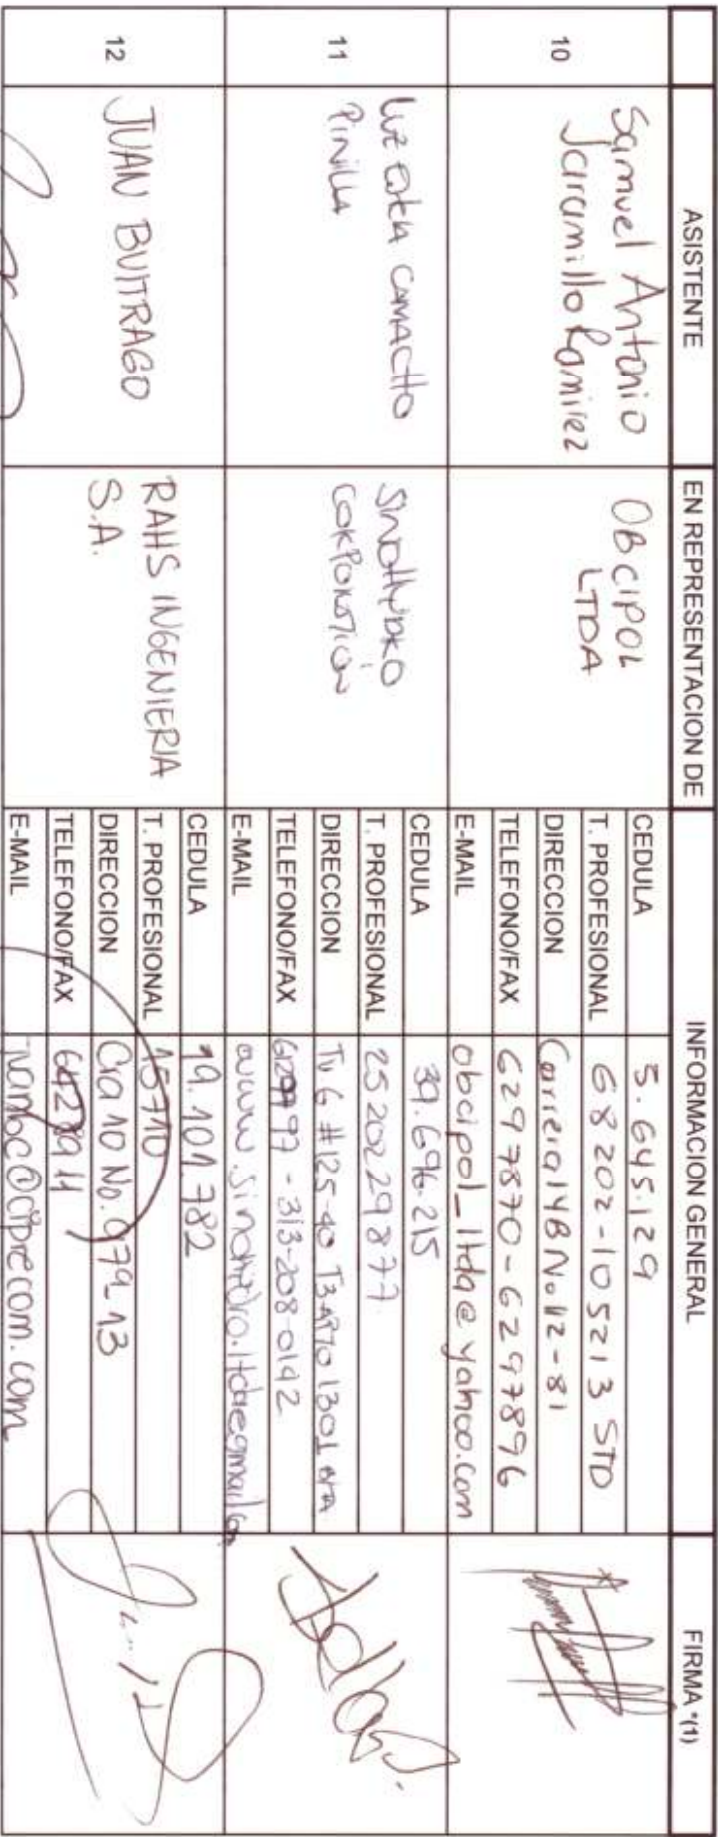 ASISTENTE EN REPRESENTACION DE INFORMACION GENERAL FIRMA *(1)
10
Samuel Antonio
Jaramillo Ramirez
OBCIPOL
LTDA
CEDULA 5.645.129
T. PROFESIONAL 68202-105213 STD
DIRECCION Carrera 14B No.112-81
TELEFONO/FAX 6297870-6297896
E-MAIL obcipol_ltda@yahoo.com
11
Luz CAMACHO
PINILLA
SINOHYDRO
CORPORATION
CEDULA 39.696.215
T. PROFESIONAL 25202 29877
DIRECCION Tv 6 #125-40 T3 1301
TELEFONO/FAX - 313-208-0142
E-MAIL
12
JUAN BUITRAGO
RAHS INGENIERIA
S.A.
CEDULA 19.101.782
T. PROFESIONAL 15710
DIRECCION Cra 10 No.
TELEFONO/FAX
E-MAIL